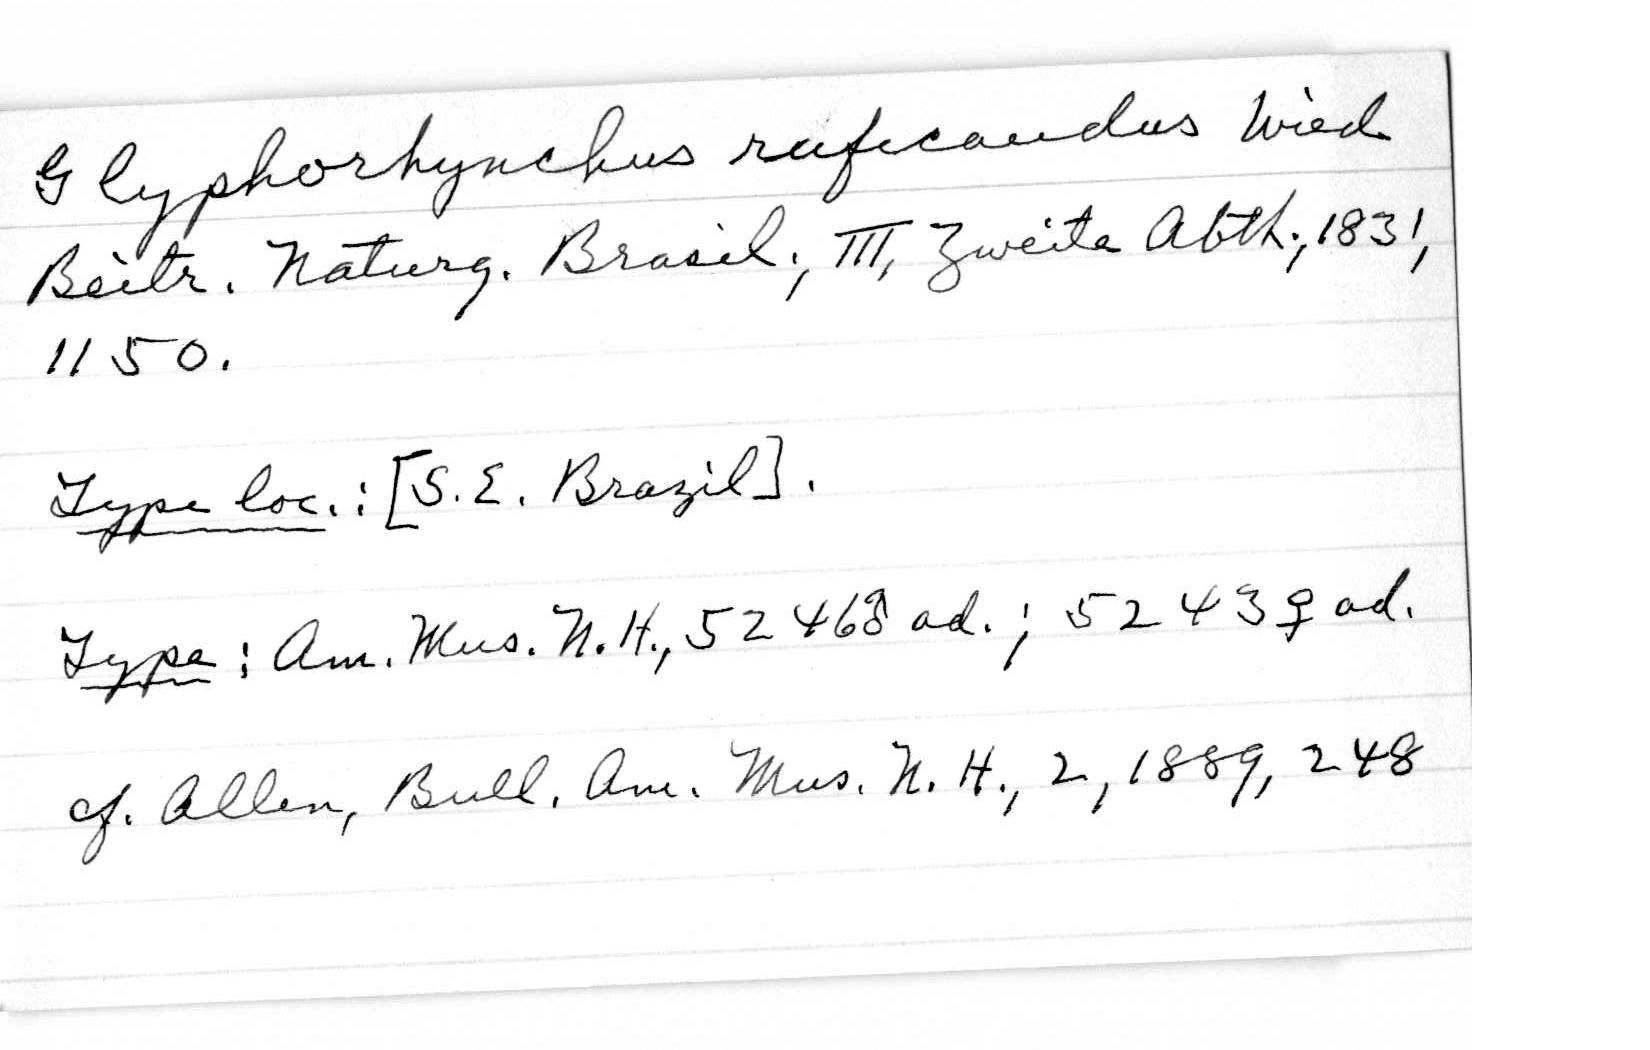 Glyphorhynchus ruficaudus Wied
Beitr. Naturg. Brasil., III, Zweite Abth., 1831,
1150.
Type loc.: [S.E. Brazil].
Type: Am. Mus. N.H., 5246♂ ad.; 5243♀ ad.
cf. Allen, Bull. Am. Mus. N.H., 2, 1889, 248